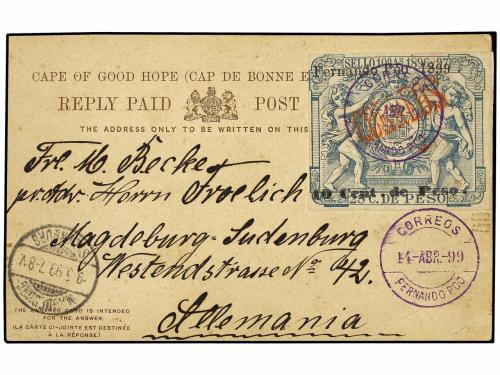 CAPE OF GOOD HOPE (CAP DE BONNE E
REPLY PAID POST
THE ADDRESS ONLY TO BE WRITTEN ON THIS
SELLO 10º AÑOS 1896-97
Fernando Póo 1899
10 Cent. de Peso.
15 C. DE PESO
Frl. M. Becker
pr. Adr. Herrn Froelich
Magdeburg-Sudenburg
Westendstrasse No 42.
Allemania
CORREOS
14-ABR-99
FERNANDO POO
THE ANNEXED CARD IS INTENDED
FOR THE ANSWER.
(LA CARTE CI-JOINTE EST DESTINÉE
À LA RÉPONSE.)